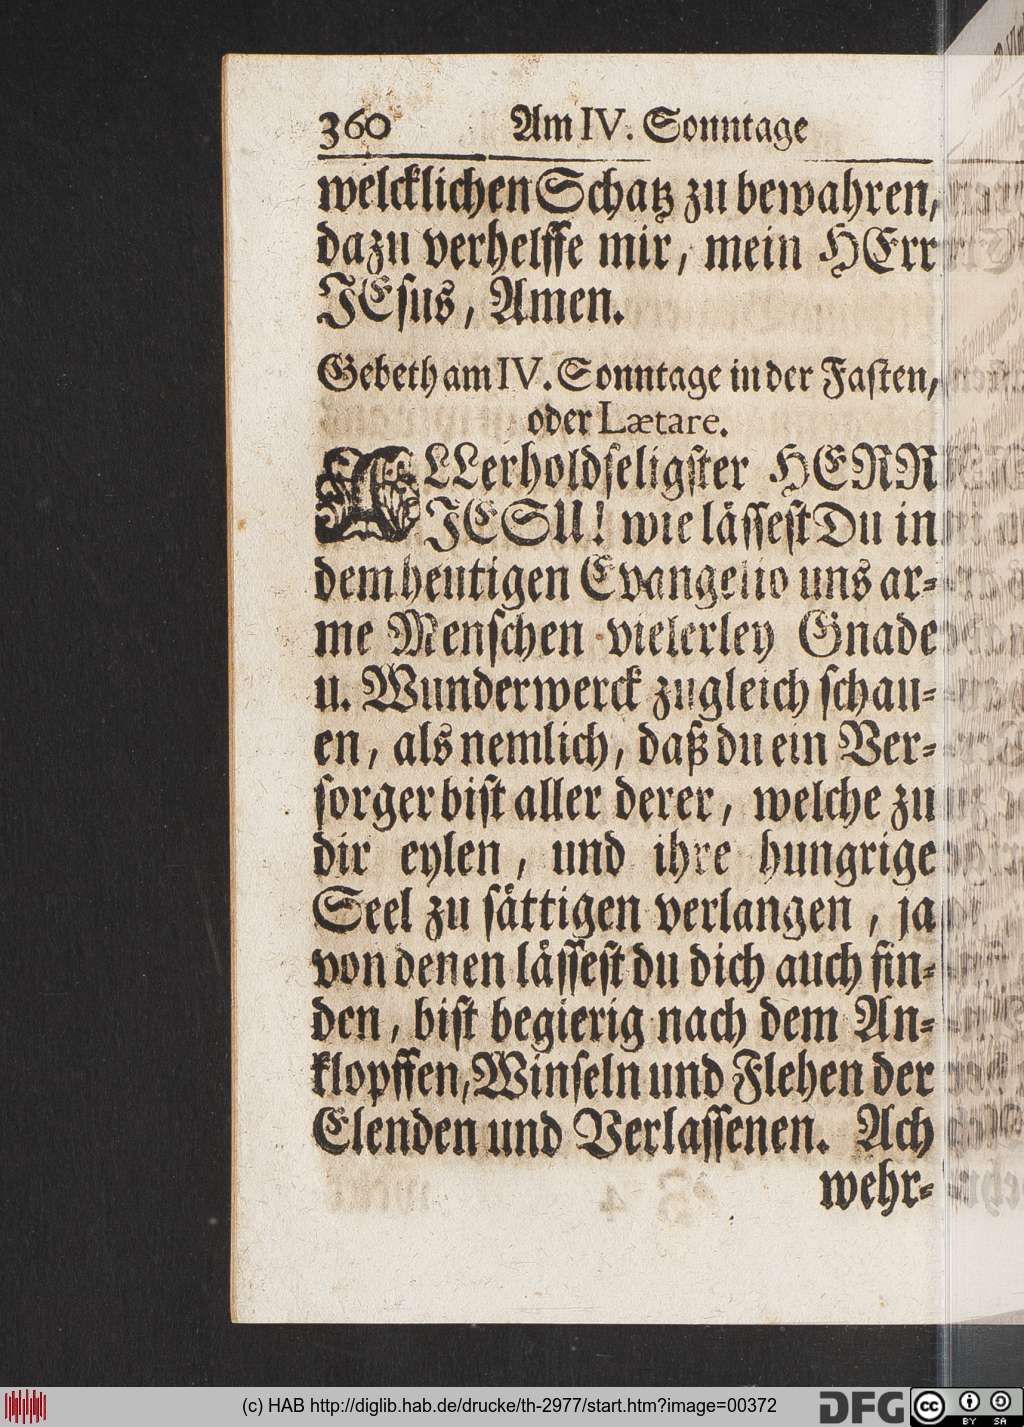 360 Am IV. Sonntage
welcklichen Schatz zu bewahren,
dazu verhelffe mir, mein HErr
JEsus, Amen.
Gebeth am IV. Sonntage in der Fasten,
oder Lætare.
ALLerholdseligster HERR
JESU! wie lässest Du in
dem heutigen Evangelio uns ar-
me Menschen vielerley Gnade
u. Wunderwerck zugleich schau-
en, als nemlich, daß du ein Ver-
sorger bist aller derer, welche zu
dir eylen, und ihre hungrige
Seel zu sättigen verlangen, ja
von denen lässest du dich auch fin-
den, bist begierig nach dem An-
klopffen, Winseln und Flehen der
Elenden und Verlassenen. Ach
wehr-
(c) HAB http://diglib.hab.de/drucke/th-2977/start.htm?image=00372
DFG
cc BY SA